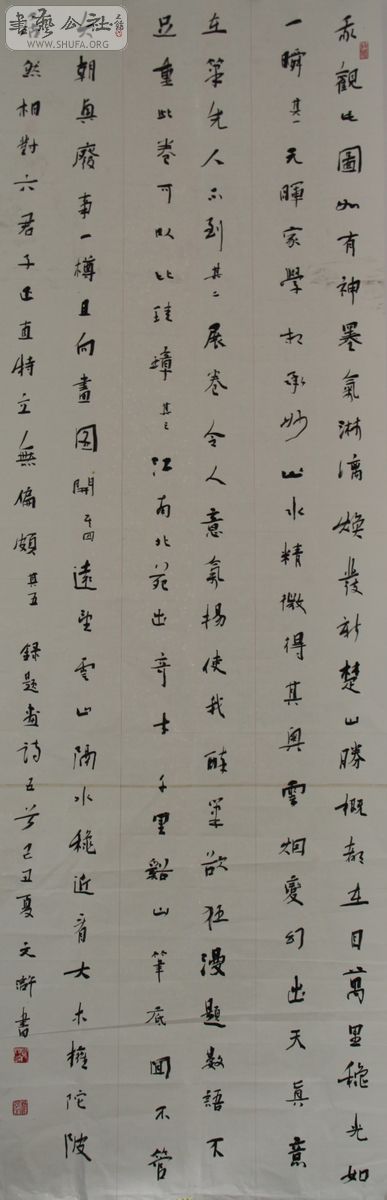 我觀此圖如有神墨氣淋漓煥發新楚山勝概都在目萬里穐光如
一瞬其一元暉家學相承妙山水精微得其奧雲烟變幻出天真意
在筆先人不到其二展卷令人意氣揚使我醉筆欲狂漫題數語不
足重此卷可以比珪璋其三江南北苑出奇才千里谿山筆底回不管
朝興廢事一樽且向畫圖開其四遠望雲山隔水穐近看大木擁陀陂
然相對六君子正直特立無偏頗其五錄題畫詩五首己丑夏文書
書藝公社
WWW.SHUFA.ORG